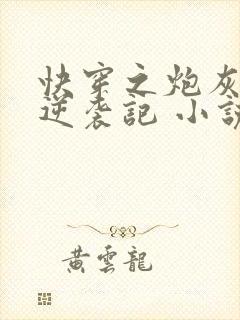 快穿之炮灰
逆袭記 小說
黃雲龍